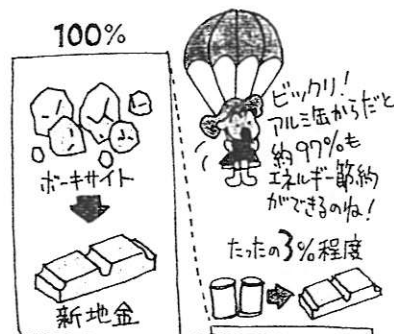 100%
ボーキサイト
新地金
ビックリ!
アルミ缶からだと
約97%も
エネルギー節約
ができるのね!
たったの3%程度